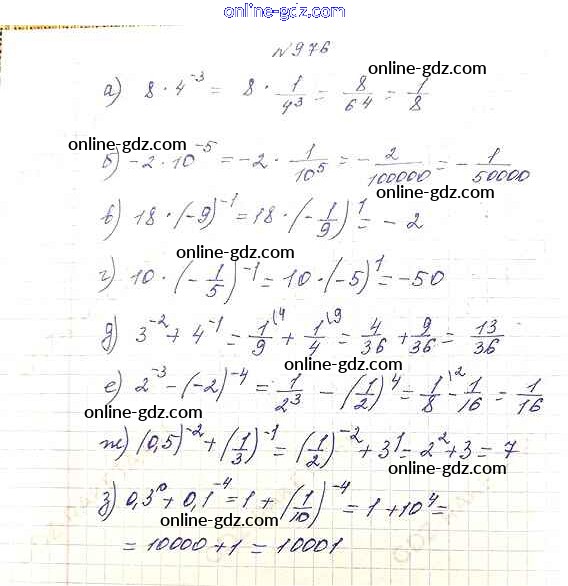 online-gdz.com
№976
online-gdz.com
а) 8 · 4⁻³ = 8 · 1/4³ = 8/64 = 1/8
online-gdz.com
б) -2 · 10⁻⁵ = -2 · 1/10⁵ = - 2/100000 = - 1/50000
online-gdz.com
в) 18 · (-9)⁻¹ = 18 · (-1/9)¹ = -2
online-gdz.com
г) 10 · (-1/5)⁻¹ = 10 · (-5)¹ = -50
online-gdz.com
д) 3⁻² + 4⁻¹ = 1/9 \4 + 1/4 \9 = 4/36 + 9/36 = 13/36
online-gdz.com
е) 2⁻³ - (-2)⁻⁴ = 1/2³ - (1/2)⁴ = 1/8 \2 - 1/16 = 1/16
online-gdz.com
ж) (0,5)⁻² + (1/3)⁻¹ = (1/2)⁻² + 3¹ = 2² + 3 = 7
online-gdz.com
з) 0,3⁰ + 0,1⁻⁴ = 1 + (1/10)⁻⁴ = 1 + 10⁴ =
online-gdz.com
= 10000 + 1 = 10001
online-gdz.com